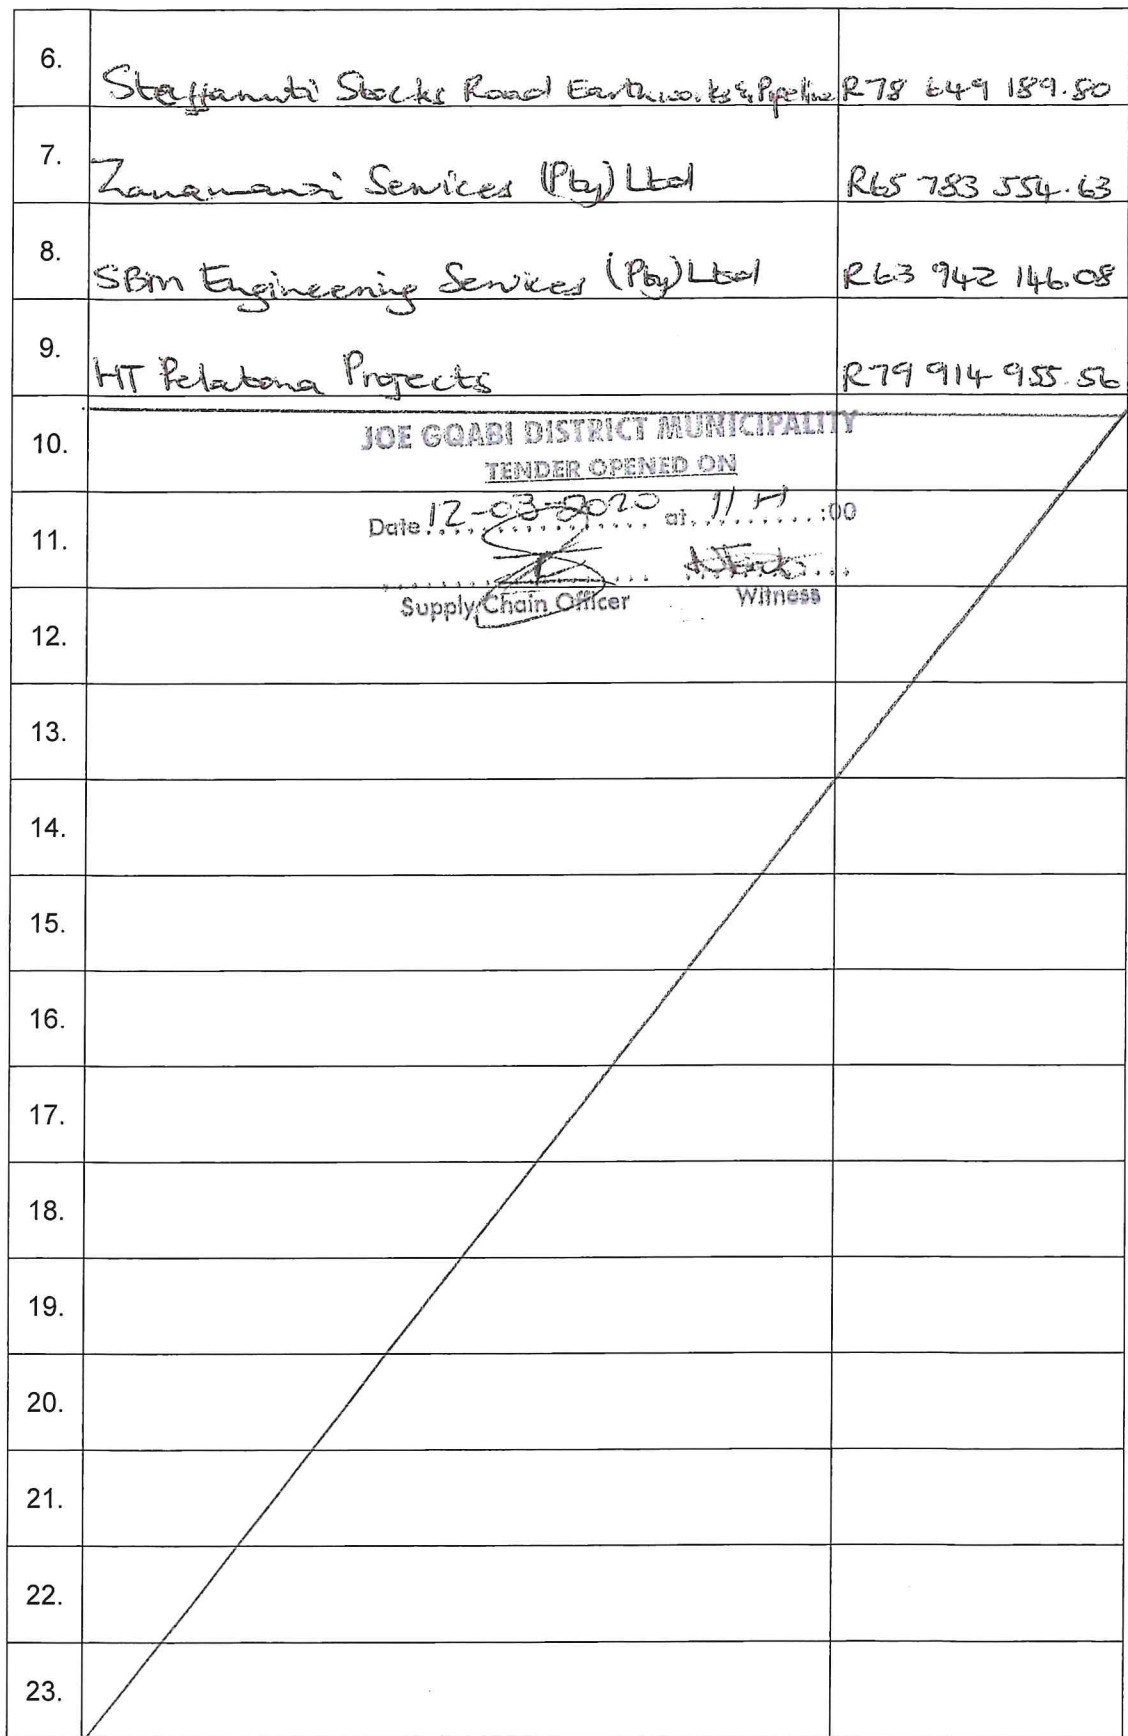 6. Steffanuti Stocks Road Earthworks & Pipeline R78 649 189.80
7. Zanamanzi Services (Pty) Ltd R65 783 554.63
8. SBM Engineering Services (Pty) Ltd R63 942 146.08
9. HT Pelatona Projects R79 914 955.56
10.
JOE GQABI DISTRICT MUNICIPALITY
TENDER OPENED ON
11.
Date 12-03-2020 at 11 H :00
Supply Chain Officer Witness
12.
13.
14.
15.
16.
17.
18.
19.
20.
21.
22.
23.